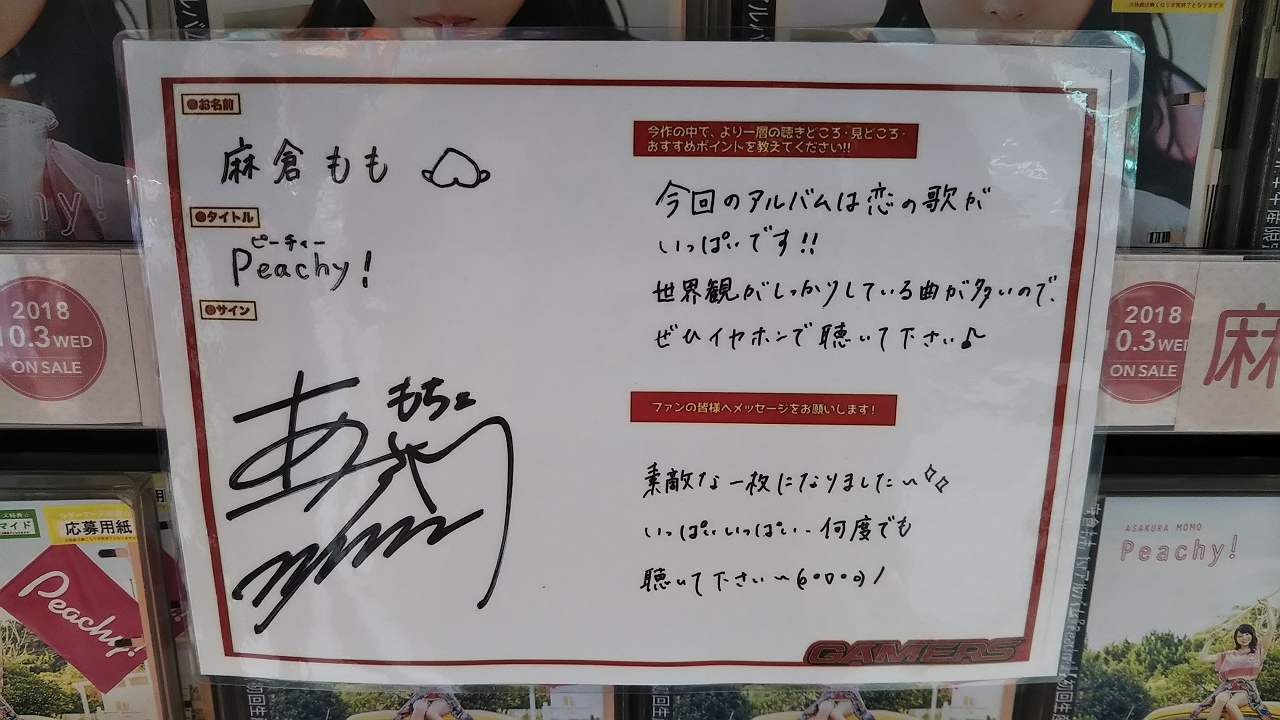 お名前
麻倉もも
タイトル
ピーチィー
Peachy!
サイン
もちょ
今作の中で、より一層の聴きどころ・見どころ・
おすすめポイントを教えてください!!
今回のアルバムは恋の歌が
いっぱいです!!
世界観がしっかりしている曲が多いので、
ぜひイヤホンで聴いて下さい♪
ファンの皆様へメッセージをお願いします!
素敵な一枚になりました〜
いっぱいいっぱい..何度でも
聴いて下さい〜
GAMERS
chy!
2018
10.3 WED
ON SALE
2018
10.3 WE
ON SALE
麻
マイド
応募用紙
Peachy!
ASAKURA MOMO
Peachy!